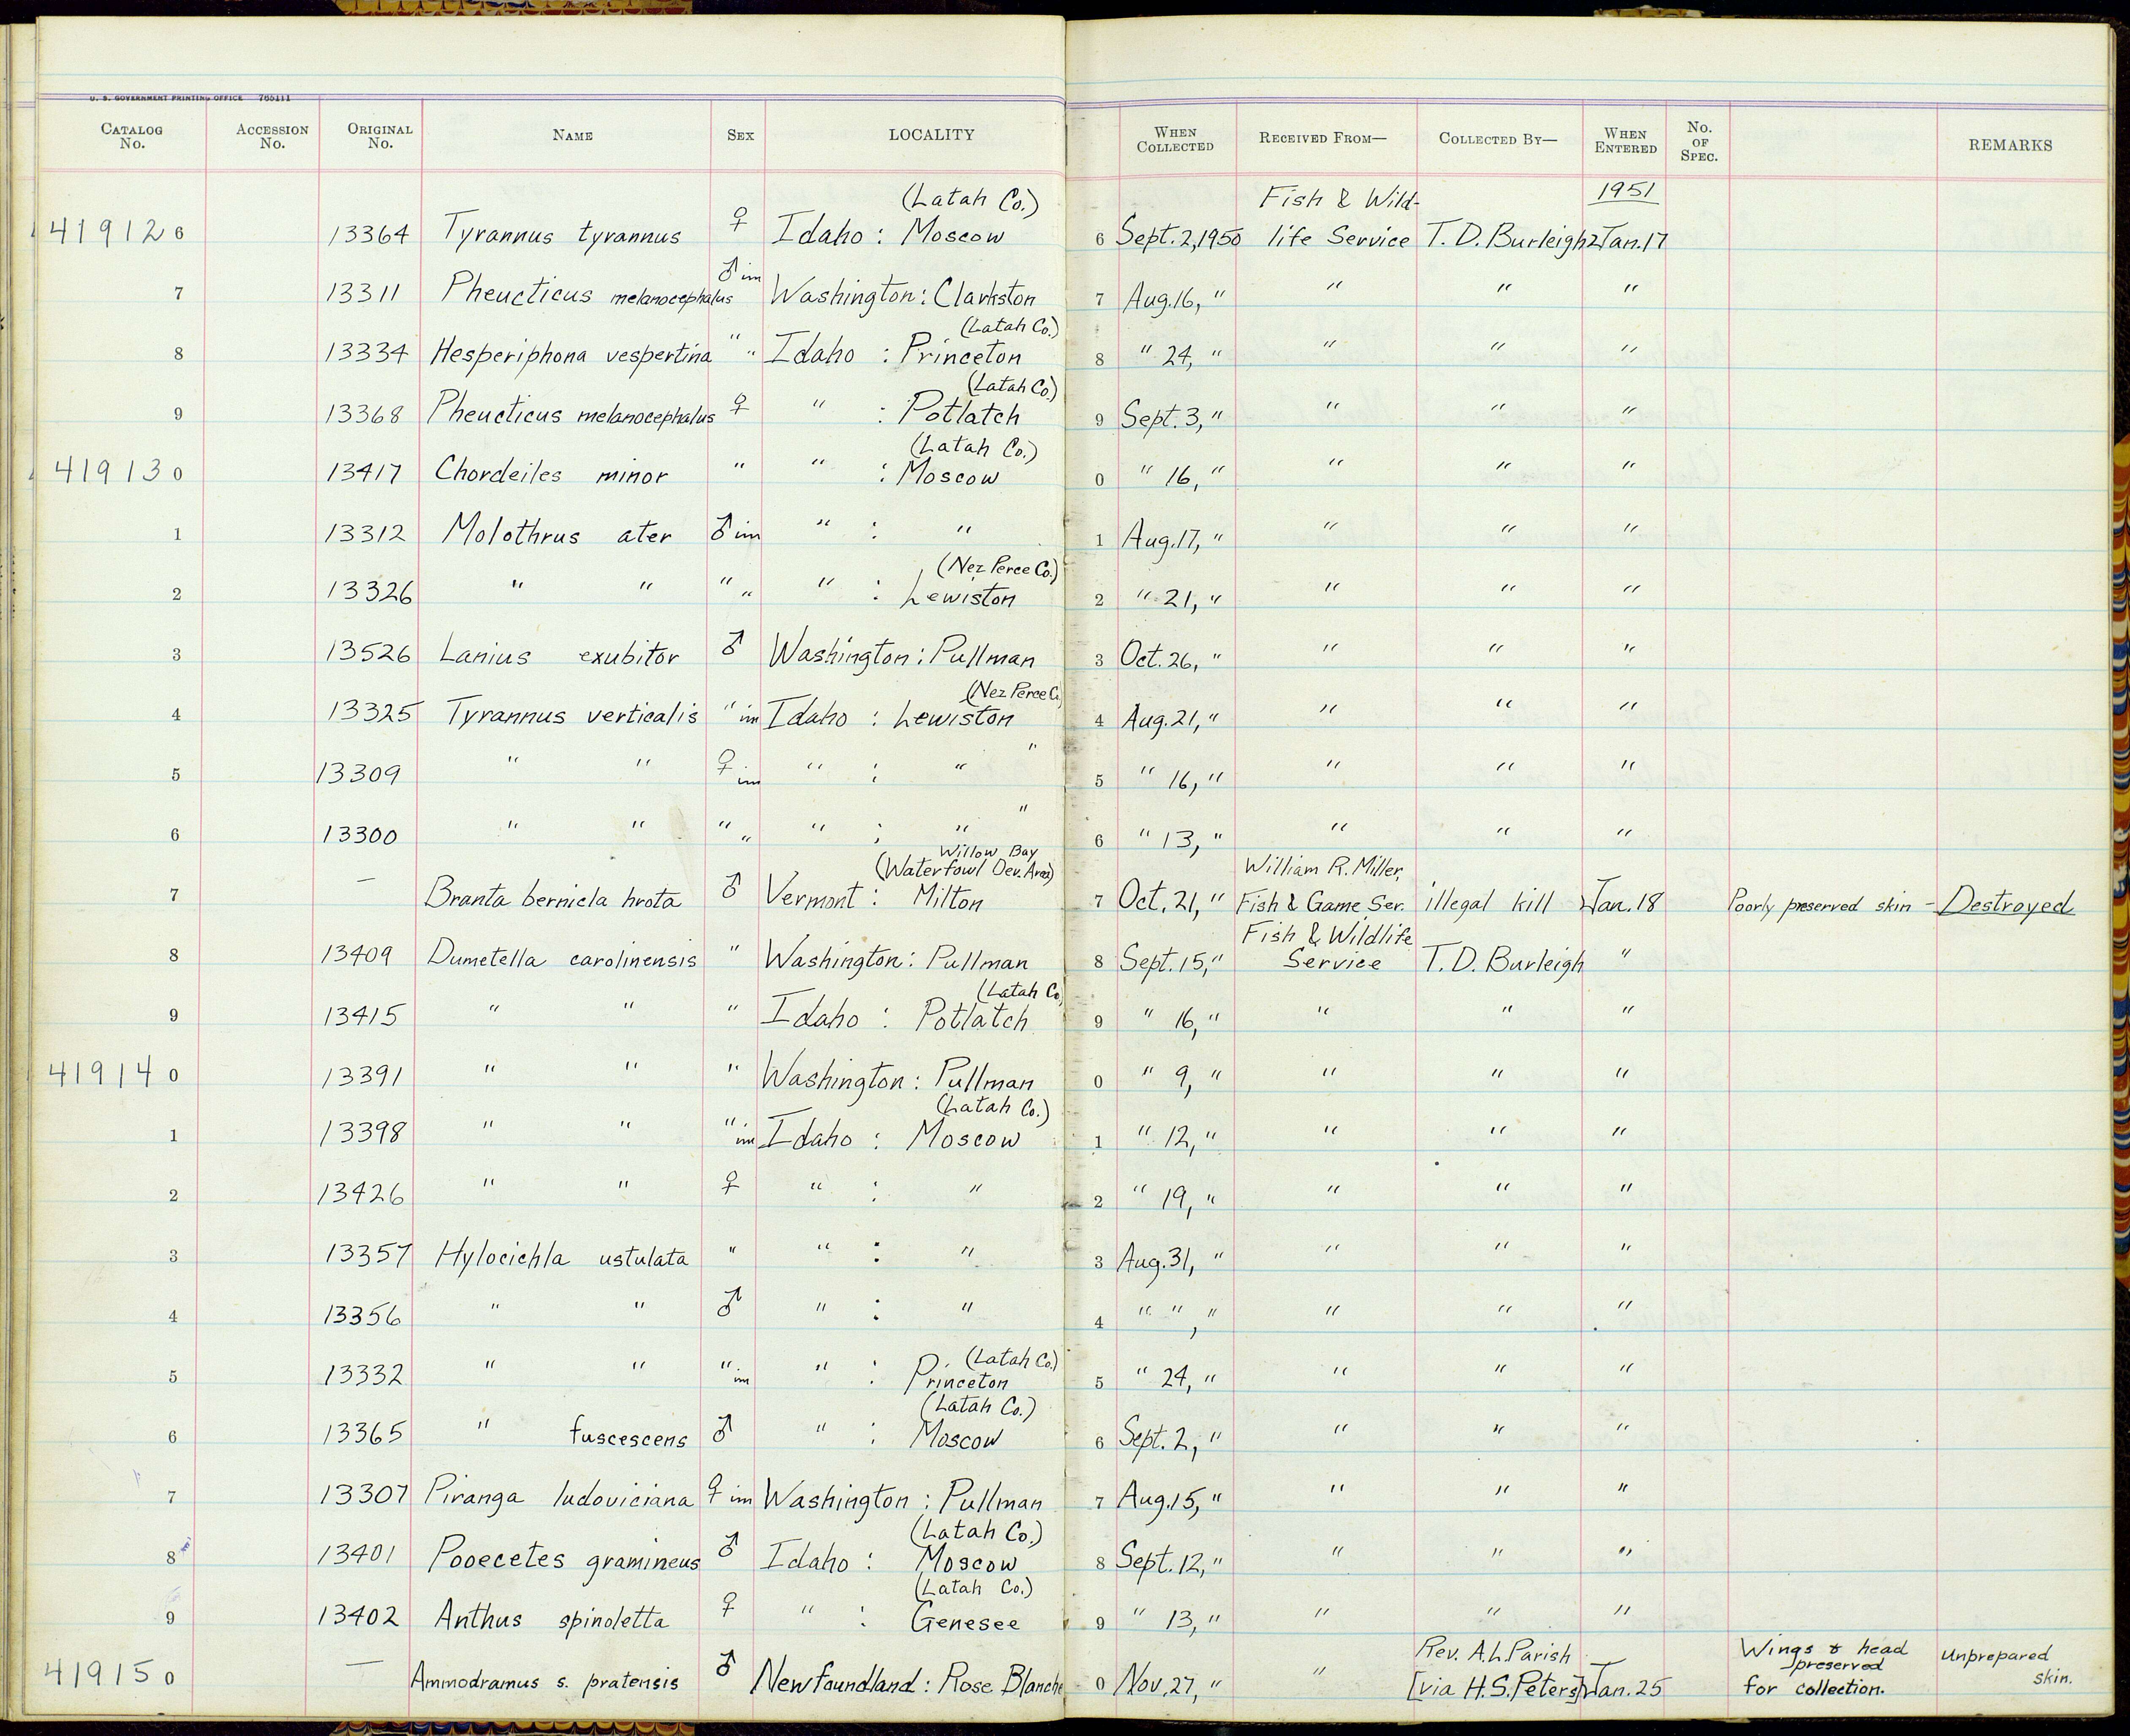 U. S. GOVERNMENT PRINTING OFFICE 765111
CATALOG No. ACCESSION No. ORIGINAL No. NAME SEX LOCALITY WHEN COLLECTED RECEIVED FROM— COLLECTED BY— WHEN ENTERED No. OF SPEC. REMARKS
(Latah Co.) Fish & Wild- 1951
419126 13364 Tyrannus tyrannus ♀ Idaho : Moscow 6 Sept. 2, 1950 life Service T. D. Burleigh Jan. 17
7 13311 Pheucticus melanocephalus ♂ im Washington : Clarkston 7 Aug. 16, " " " "
(Latah Co.)
8 13334 Hesperiphona vespertina " " Idaho : Princeton 8 " 24, " " " "
(Latah Co.)
9 13368 Pheucticus melanocephalus ♀ " : Potlatch 9 Sept. 3, " " " "
(Latah Co.)
419130 13417 Chordeiles minor " " : Moscow 0 " 16, " " " "
1 13312 Molothrus ater ♂ im " : " 1 Aug. 17, " " " "
(Nez Perce Co.)
2 13326 " " " " " : Lewiston 2 " 21, " " " "
3 13526 Lanius exubitor ♂ Washington : Pullman 3 Oct. 26, " " " "
(Nez Perce Co
4 13325 Tyrannus verticalis " im Idaho : Lewiston 4 Aug. 21, " " " "
"
5 13309 " " ♀ im " : " 5 " 16, " " " "
"
6 13300 " " " " " : " 6 " 13, " " " "
Willow Bay
(Waterfowl Dev. Area) William R. Miller,
7 — Branta bernicla hrota ♂ Vermont : Milton 7 Oct. 21, " Fish & Game Ser. illegal kill Jan. 18 Poorly preserved skin - Destroyed
Fish & Wildlife
8 13409 Dumetella carolinensis " Washington : Pullman 8 Sept. 15, " Service T. D. Burleigh "
(Latah Co
9 13415 " " " Idaho : Potlatch 9 " 16, " " " "
419140 13391 " " " Washington : Pullman 0 " 9, " " " "
(Latah Co.)
1 13398 " " " im Idaho : Moscow 1 " 12, " " " "
2 13426 " " ♀ " : " 2 " 19, " " " "
3 13357 Hylocichla ustulata " " : " 3 Aug. 31, " " " "
4 13356 " " ♂ " : " 4 " " , " " " "
(Latah Co.)
5 13332 " " " im " : Princeton 5 " 24, " " " "
(Latah Co.)
6 13365 " fuscescens ♂ " : Moscow 6 Sept. 2, " " " "
7 13307 Piranga ludoviciana ♀ im Washington : Pullman 7 Aug. 15, " " " "
(Latah Co.)
8 13401 Pooecetes gramineus ♂ Idaho : Moscow 8 Sept. 12, " " " "
(Latah Co.)
9 13402 Anthus spinoletta ♀ " : Genesee 9 " 13, " " " "
Rev. A. L. Parish Wings & head Unprepared
preserved
419150 — Ammodramus s. pratensis ♂ Newfoundland : Rose Blanche 0 Nov. 27, " " [via H. S. Peters] Jan. 25 for collection. skin.